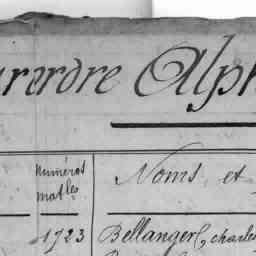 ar ordre Alph
numéros
mat.les
Noms, et
1723 Bellanger, charles